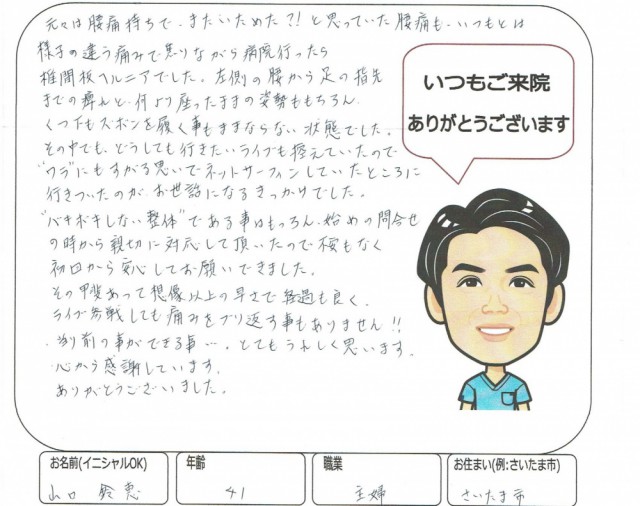 元々は腰痛持ちで、またいためた?!と思っていた腰痛も、いつもとは
様子の違う痛みで焦りながら病院行ったら
椎間板ヘルニアでした。左側の腰から足の指先
までの痺れと、何より座ったままの姿勢ももちろん、
くつ下もズボンを履く事もままならない状態でした。
その中でも、どうしても行きたいライブも控えていたので
"ワラ"にもすがる思いでネットサーフィンしていたところに
行きついたのが、お世話になるきっかけでした。
"バキボキしない整体"である事はもちろん、始めの問合せ
の時から親切に対応して頂いたので不安もなく
初回から安心してお願いできました。
その甲斐あって想像以上の早さで経過も良く、
ライブ参戦しても痛みをブリ返す事もありません!!
当り前の事ができる事…。とてもうれしく思います。
心から感謝しています。
ありがとうございました。
いつもご来院
ありがとうございます
お名前(イニシャルOK)
山口 鈴恵
年齢
41
職業
主婦
お住まい(例:さいたま市)
さいたま市